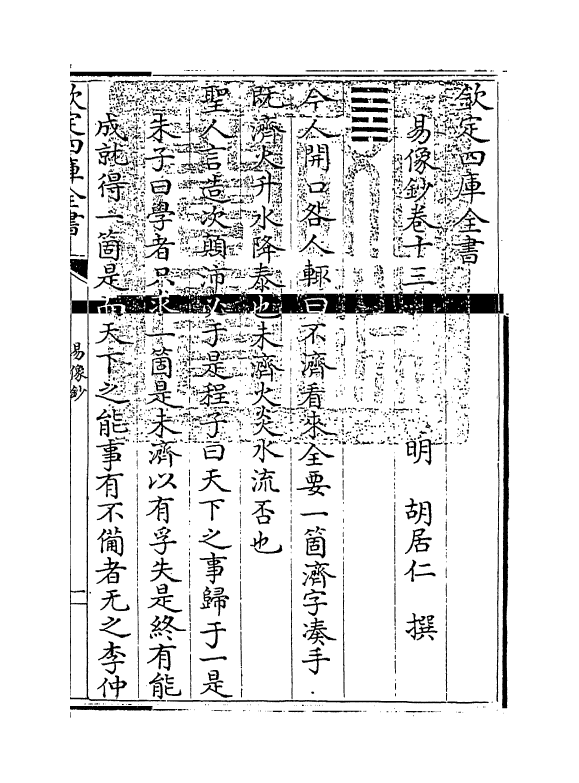 欽定四庫全書
易像鈔卷十三 明 胡居仁 撰
今人開口咎人輒曰不濟看來全要一箇濟字湊手
既濟火升水降泰也未濟火炎水流否也
聖人言造次顛沛必于是程子曰天下之事歸于一是
朱子曰學者只求一箇是未濟以有孚失是終有能
成就得一箇是而天下之能事有不備者无之李仲
欽定四庫全書
易像鈔